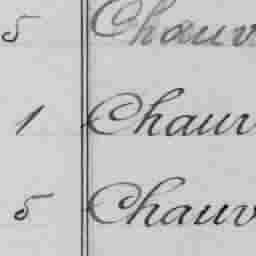 5 Chauv
1 Chauv
5 Chauv